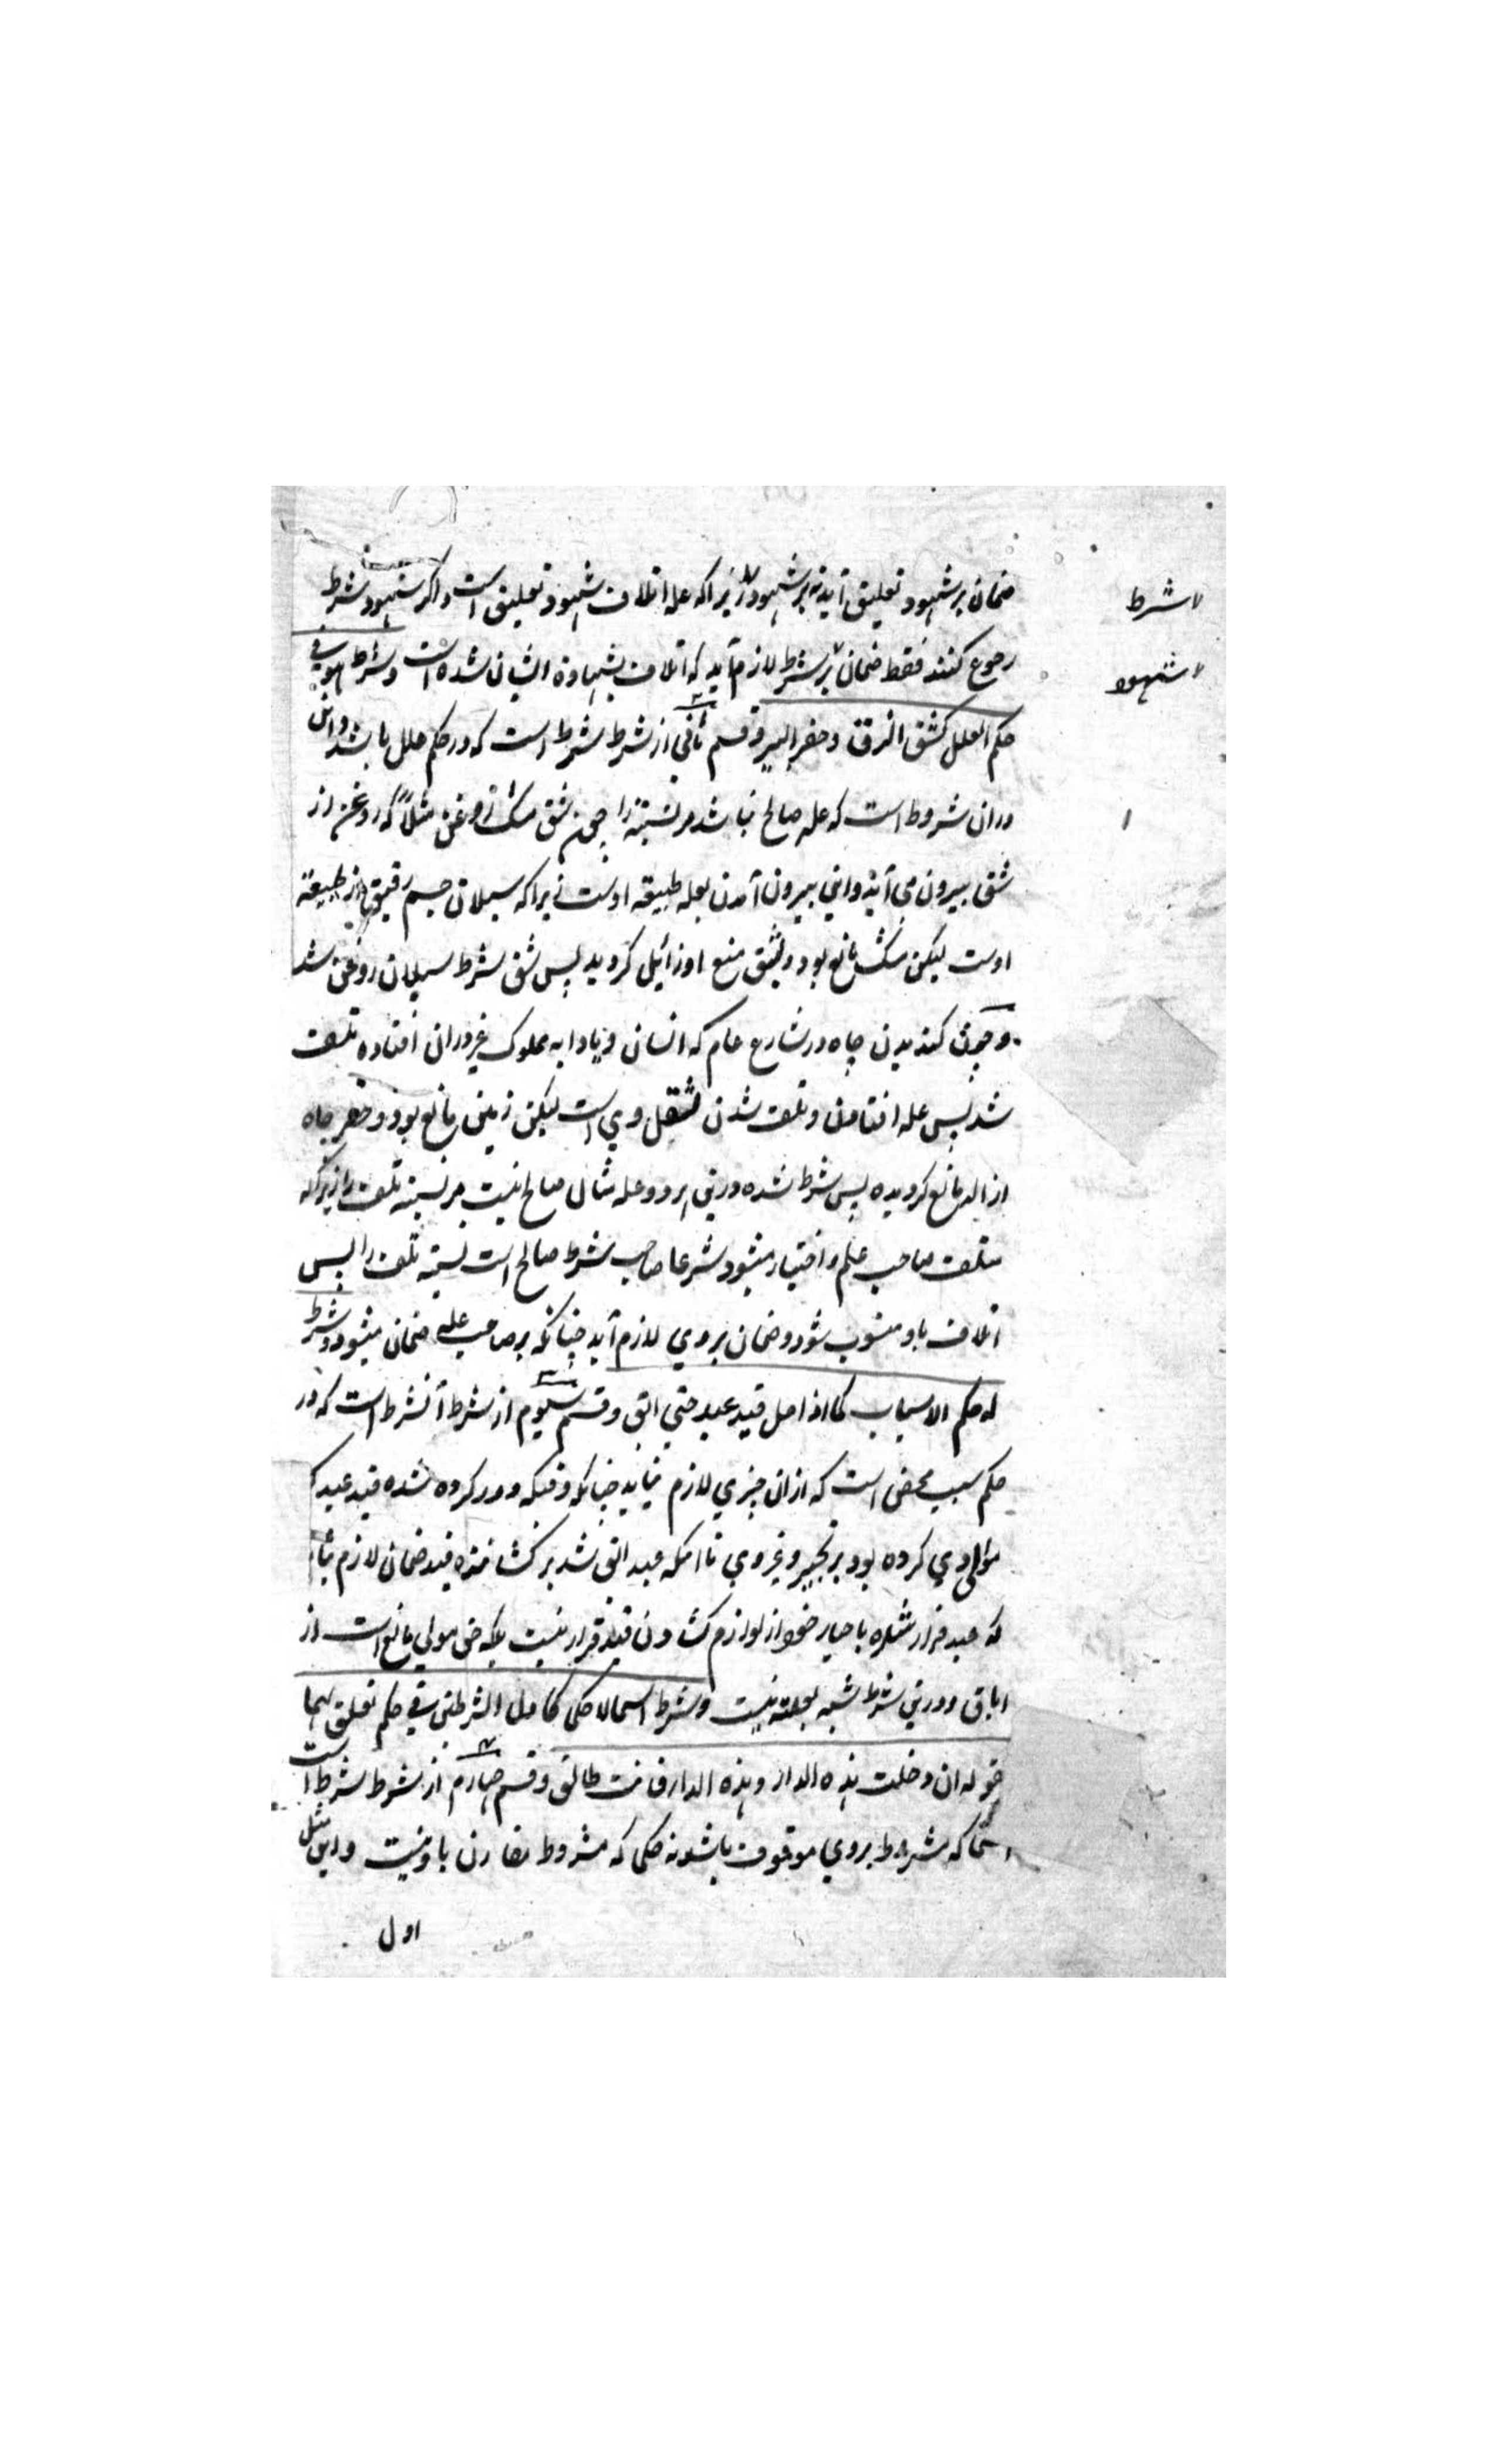 ضمان بر شهود تعلیق آید نه بر شهود زیرا که علة اتلاف شهود تعلیق است و اگر شهود شرط
شرط
رجوع کنند فقط ضمان بر شرط لازم آید که اتلاف بشهادة ایشان شده است و شرط هو فی
شهود
حکم العلل کشق الزق و حفر البیر و قسم ثانی از شرط شرط است که در حکم علل باشد و این
دران شروط است که علة صالح نباشد مر نسبة را چون شق مشک روغن مثلاً که روغن از
شق بیرون می آید و این بیرون آمدن بعلة طبیعة اوست زیرا که سیلان جسم رقیق از طبیعة
اوست لیکن مشک مانع بود و بشق منع او زائل گردید پس شق شرط سیلان روغن شد
و چون کندیدن چاه در شارع عام که انسان و یا دابه مملوک غیر دران افتاده تلف
شد پس علة افتادن و تلف شدن ثقل وی است لیکن زمین مانع بود و حفر چاه
ازاله مانع گردیده پس شرط شده درین هر دو علة مثال صالح نیست مر نسبة تلف را زیرا که
متلف صاحب علم و اختیار میشود شرعا صاحب شرط صالح است نسبة تلف را پس
اتلاف باو منسوب شود و ضمان بر وی لازم آید چنانکه بر صاحب علة ضمان میشود و شرط
له حکم الاسباب کما اذا حل قید عبد حتی ابق و قسم سیوم از شرط آنشرط است که در
حکم سبب محض است که ازان چیزی لازم نیاید چنانکه وقتیکه دور کرده شده قید عبد که
مولای وی کرده بود بزنجیر و غیر وی تا آنکه عبد ابق شد بر کشاننده قید ضمان لازم نیاید
که عبد فرار شده باختیار خود از لوازم کشادن قید فرار نیست بلکه حق مولی مانع است از
اباق و درین شرط شبه بعلة نیست و شرط اسما لا حکما کاول الشرطین فی حکم تعلق بهما
کقوله ان دخلت هذه الدار و هذه الدار فانت طالق و قسم چهارم از شرط شرط است
اسما که مشروط بر وی موقوف باشد نه حکما که مشروط مقارن باو نیست و این مثل
اول